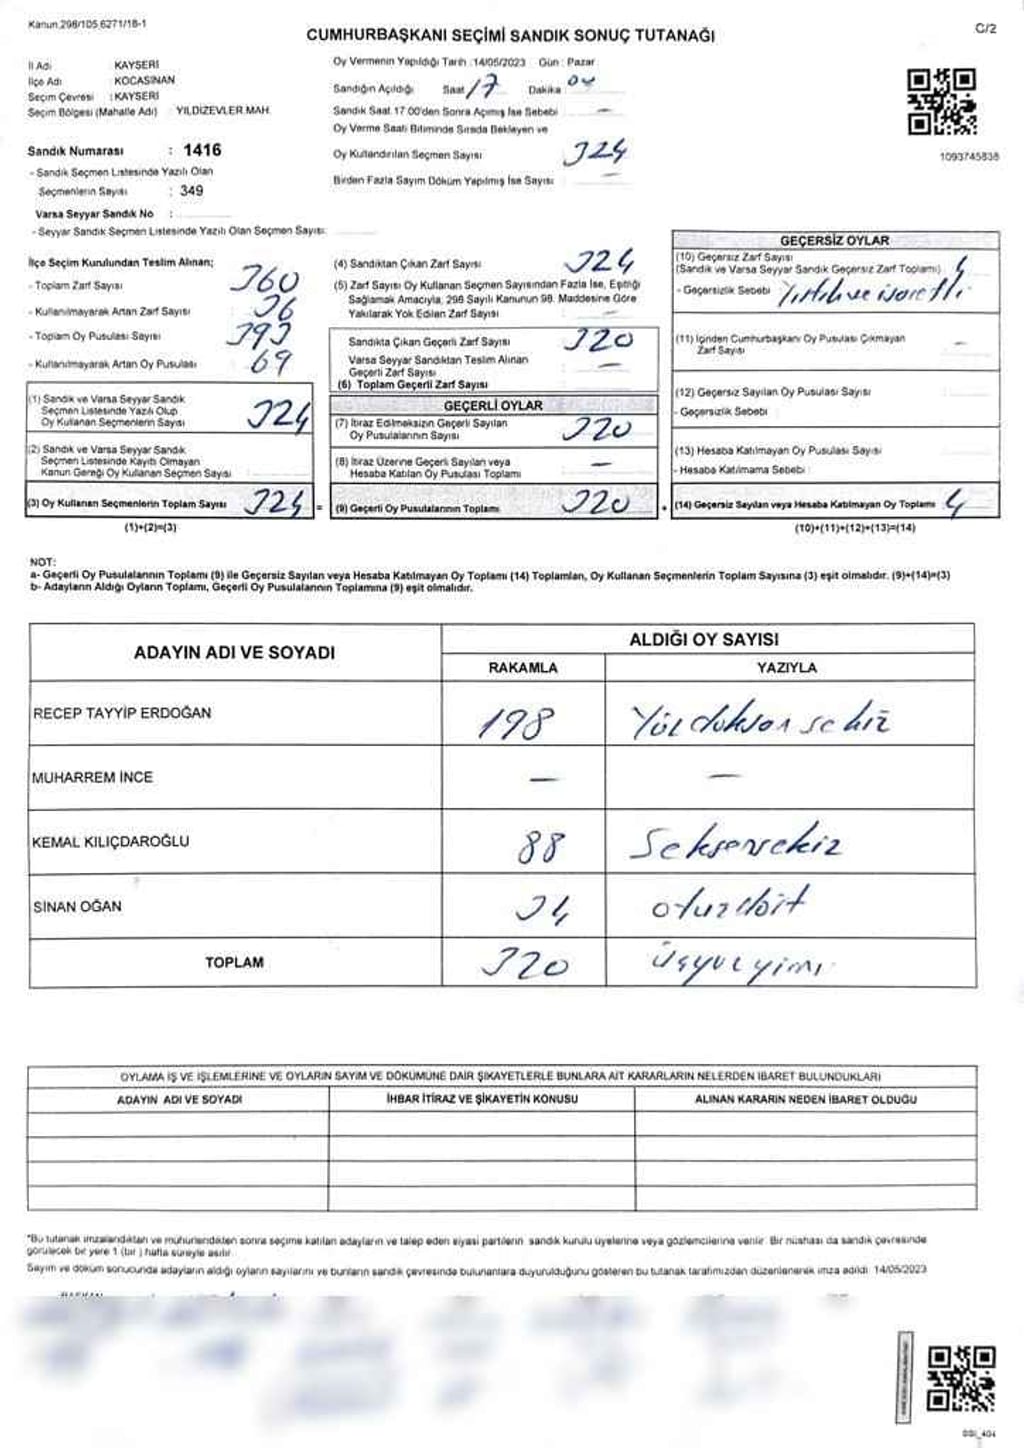 Kanun 298/105 6271/18-1
CUMHURBAŞKANI SEÇİMİ SANDIK SONUÇ TUTANAĞI
C/2
İl Adı KAYSERİ
İlçe Adı : KOCASİNAN
Seçim Çevresi : KAYSERİ
Seçim Bölgesi (Mahalle Adı) YILDIZEVLER MAH.
Sandık Numarası : 1416
- Sandık Seçmen Listesinde Yazılı Olan
Seçmenlerin Sayısı : 349
Varsa Seyyar Sandık No :
- Seyyar Sandık Seçmen Listesinde Yazılı Olan Seçmen Sayısı:
Oy Vermenin Yapıldığı Tarih :14/05/2023 Gün : Pazar
Sandığın Açıldığı Saat 17 Dakika 04
Sandık Saat 17.00'den Sonra Açılmış İse Sebebi —
Oy Verme Saati Bitiminde Sırada Bekleyen ve
Oy Kullandırılan Seçmen Sayısı 324
Birden Fazla Sayım Döküm Yapılmış İse Sayısı : —
1093745838
İlçe Seçim Kurulundan Teslim Alınan;
- Toplam Zarf Sayısı 360
- Kullanılmayarak Artan Zarf Sayısı : 36
- Toplam Oy Pusulası Sayısı 393
- Kullanılmayarak Artan Oy Pusulası 69
(1) Sandık ve Varsa Seyyar Sandık
Seçmen Listesinde Yazılı Olup
Oy Kullanan Seçmenlerin Sayısı 324
(2) Sandık ve Varsa Seyyar Sandık
Seçmen Listesinde Kayıtlı Olmayan
Kanun Gereği Oy Kullanan Seçmen Sayısı
(3) Oy Kullanan Seçmenlerin Toplam Sayısı 324 =
(1)+(2)=(3)
(4) Sandıktan Çıkan Zarf Sayısı 324
(5) Zarf Sayısı Oy Kullanan Seçmen Sayısından Fazla İse, Eşitliği
Sağlamak Amacıyla, 298 Sayılı Kanunun 98. Maddesine Göre
Yakılarak Yok Edilen Zarf Sayısı : —
Sandıkta Çıkan Geçerli Zarf Sayısı 320
Varsa Seyyar Sandıktan Teslim Alınan
Geçerli Zarf Sayısı —
(6) Toplam Geçerli Zarf Sayısı
GEÇERLİ OYLAR
(7) İtiraz Edilmeksizin Geçerli Sayılan
Oy Pusulalarının Sayısı 320
(8) İtiraz Üzerine Geçerli Sayılan veya
Hesaba Katılan Oy Pusulası Toplamı —
(9) Geçerli Oy Pusulalarının Toplamı 320 +
GEÇERSİZ OYLAR
(10) Geçersiz Zarf Sayısı
(Sandık ve Varsa Seyyar Sandık Geçersiz Zarf Toplamı) 4
- Geçersizlik Sebebi Yırtık ve işaretli
(11) İçinden Cumhurbaşkanı Oy Pusulası Çıkmayan
Zarf Sayısı —
(12) Geçersiz Sayılan Oy Pusulası Sayısı
- Geçersizlik Sebebi
(13) Hesaba Katılmayan Oy Pusulası Sayısı
- Hesaba Katılmama Sebebi
(14) Geçersiz Sayılan veya Hesaba Katılmayan Oy Toplamı 4
(10)+(11)+(12)+(13)=(14)
NOT:
a- Geçerli Oy Pusulalarının Toplamı (9) ile Geçersiz Sayılan veya Hesaba Katılmayan Oy Toplamı (14) Toplamları, Oy Kullanan Seçmenlerin Toplam Sayısına (3) eşit olmalıdır. (9)+(14)=(3)
b- Adayların Aldığı Oyların Toplamı, Geçerli Oy Pusulalarının Toplamına (9) eşit olmalıdır.
ADAYIN ADI VE SOYADI
ALDIĞI OY SAYISI
RAKAMLA YAZIYLA
RECEP TAYYİP ERDOĞAN 198 Yüz doksan sekiz
MUHARREM İNCE — —
KEMAL KILIÇDAROĞLU 88 Seksensekiz
SİNAN OĞAN 34 otuzdört
TOPLAM 320 üçyüzyirmi
OYLAMA İŞ VE İŞLEMLERİNE VE OYLARIN SAYIM VE DÖKÜMÜNE DAİR ŞİKAYETLERLE BUNLARA AİT KARARLARIN NELERDEN İBARET BULUNDUKLARI
ADAYIN ADI VE SOYADI İHBAR İTİRAZ VE ŞİKAYETİN KONUSU ALINAN KARARIN NEDEN İBARET OLDUĞU
*Bu tutanak imzalandıktan ve mühürlendikten sonra seçime katılan adayların ve talep eden siyasi partilerin sandık kurulu üyelerine veya gözlemcilerine verilir. Bir nüshası da sandık çevresinde
görülecek bir yere 1 (bir ) hafta süreyle asılır.
Sayım ve döküm sonucunda adayların aldığı oyların sayılarını ve bunların sandık çevresinde bulunanlara duyurulduğunu gösteren bu tutanak tarafımızdan düzenlenerek imza edildi. 14/05/2023